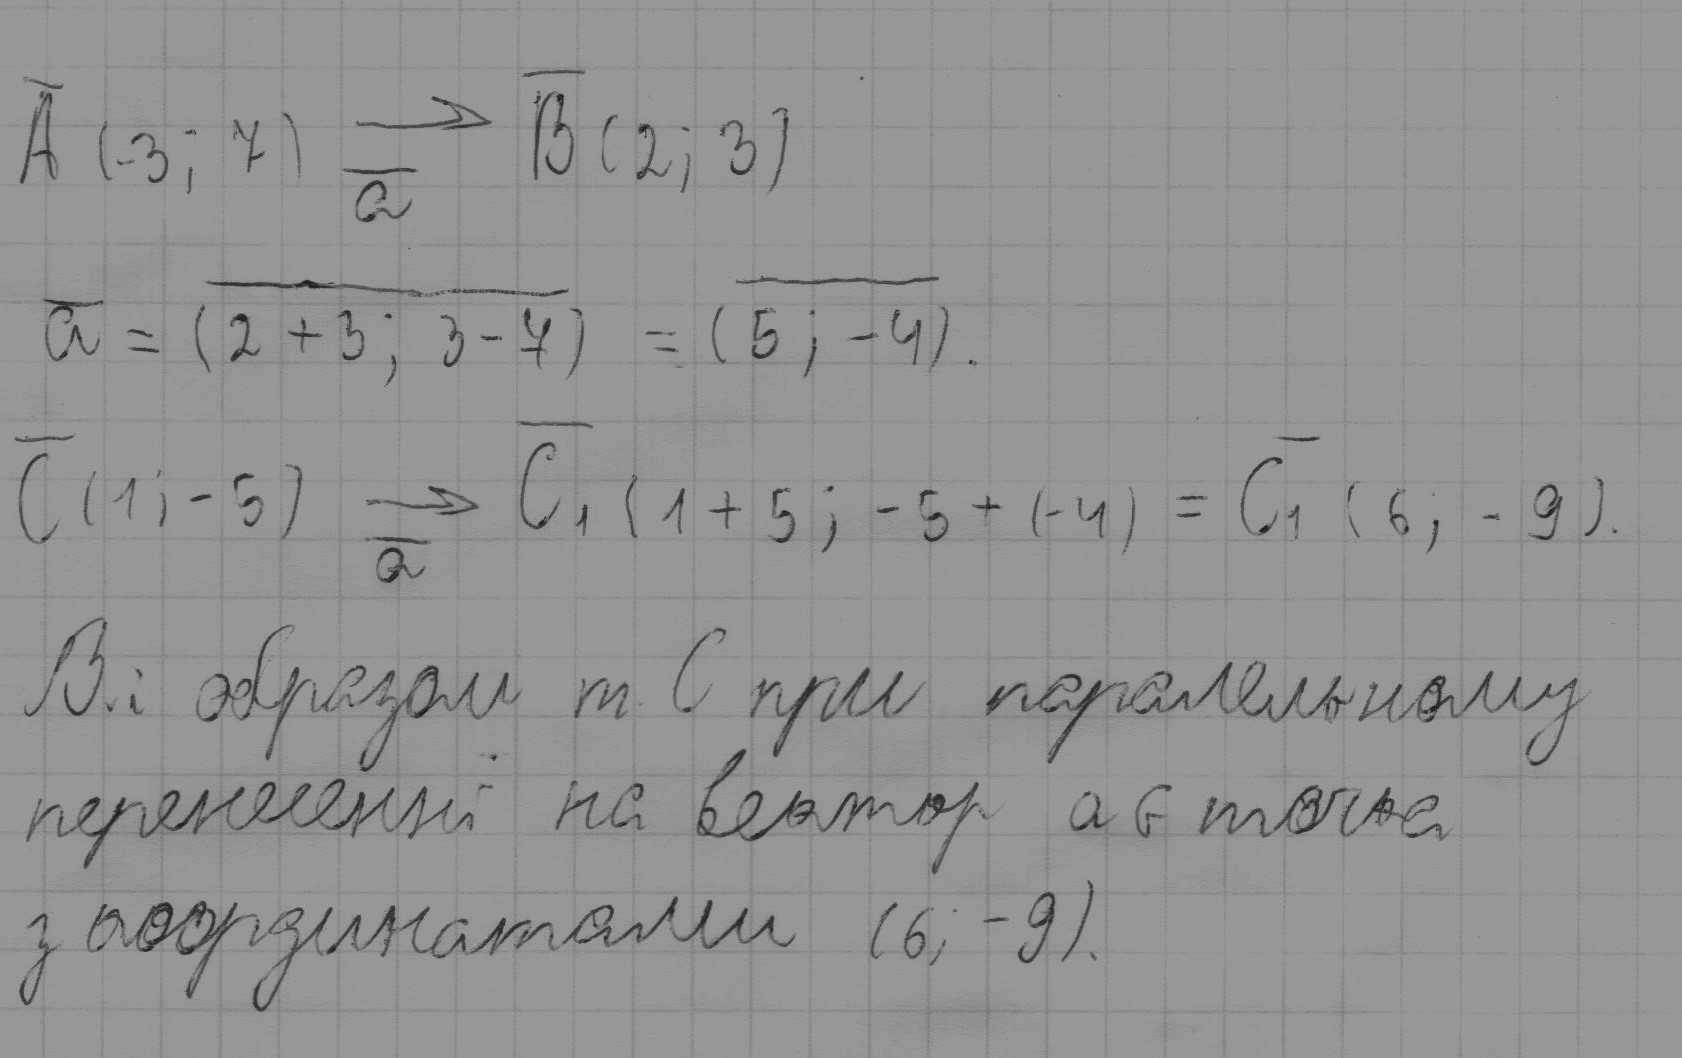 A̅ (-3; 7) → B̅ (2; 3)
a̅
a̅ = (2 + 3; 3 - 7) = (5; -4).
C̅ (1; -5) → C̅₁ (1 + 5; -5 + (-4) = C̅₁ (6; -9).
a̅
В.: образом т. С при паралельному
перенесенні на вектор а є точка
з координатами (6; -9).